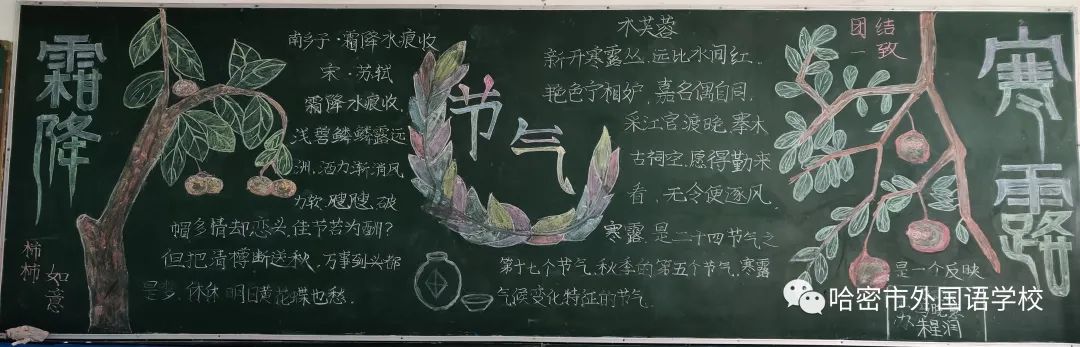 霜降
南乡子·霜降水痕收
宋·苏轼
霜降水痕收，
浅碧鳞鳞露远
洲，酒力渐消风
力软，飕飕，破
帽多情却恋头，佳节若为酬？
但把清樽断送秋，万事到头都
是梦，休休，明日黄花蝶也愁。
柿柿
如意
节气
水芙蓉
新开寒露丛，远比水间红。
艳色宁相妒，嘉名偶自同。
采江官渡晚，搴木
古祠空，愿得勤来
看，无令便逐风。
寒露，是二十四节气之
第十七个节气，秋季的第五个节气，寒露
是一个反映
气候变化特征的节气。
团结
一致
寒露
朱星润
哈密市外国语学校